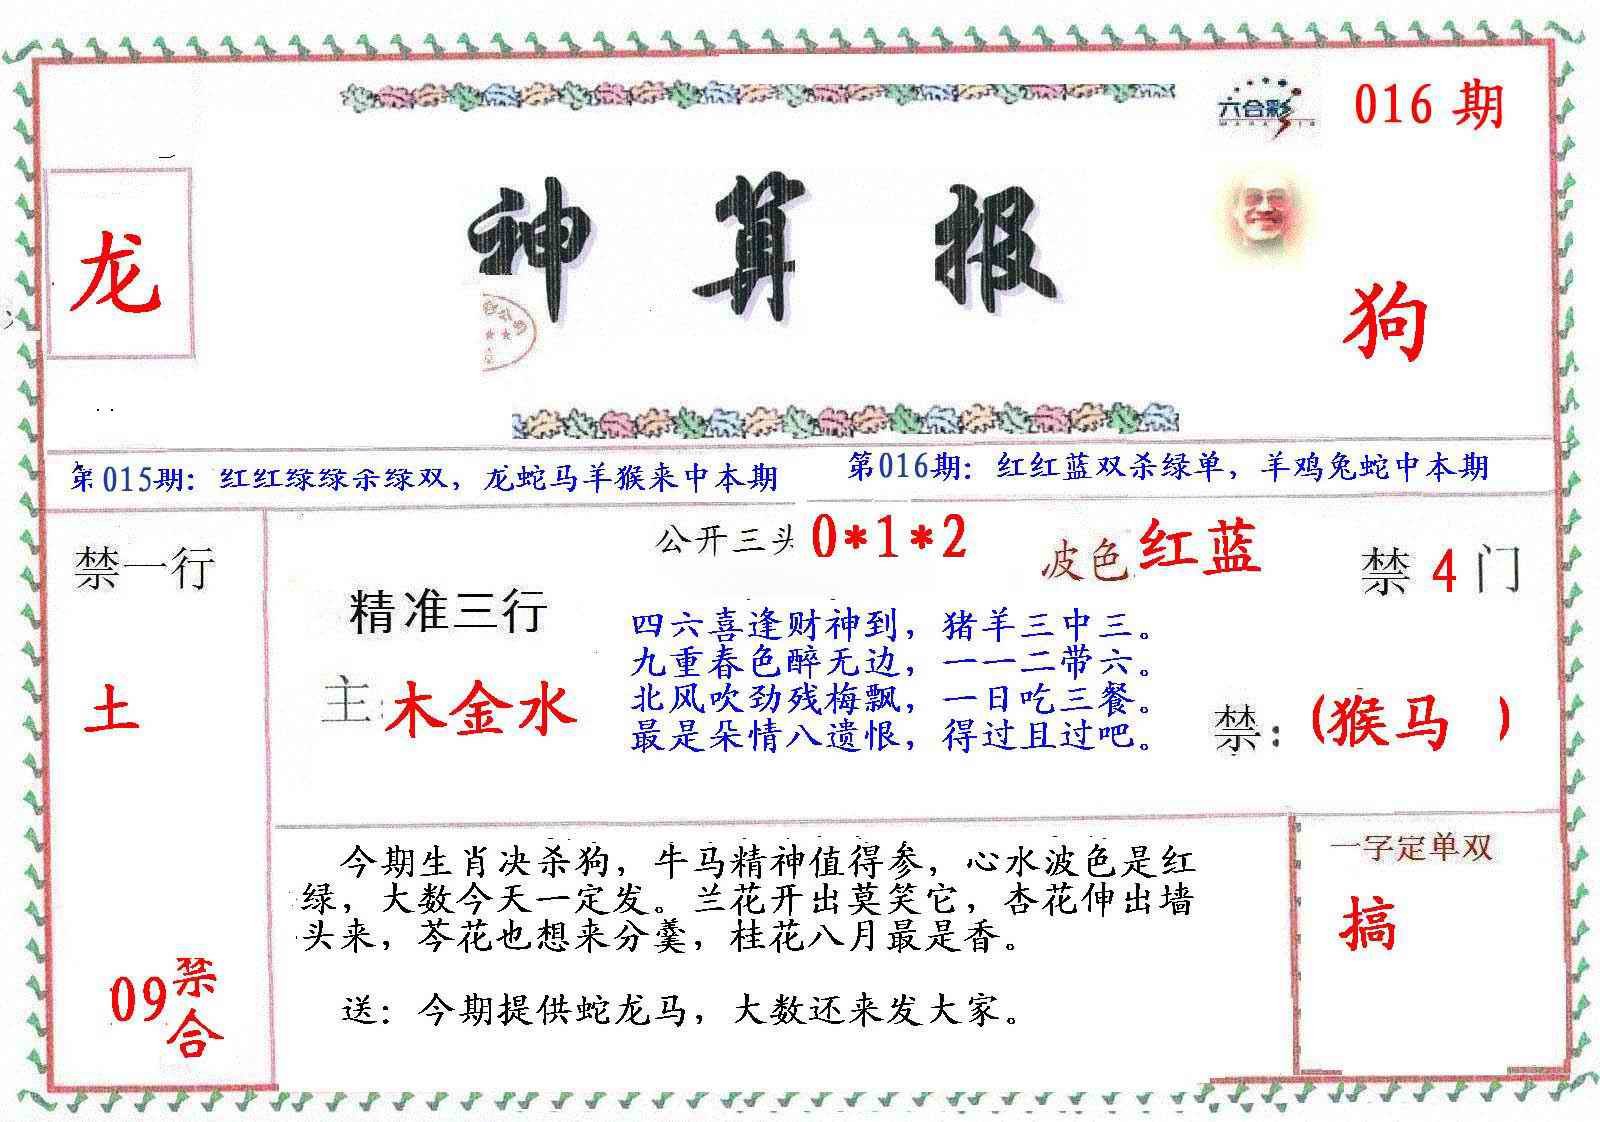 六合彩
016 期
龙
神算报
狗
第015期：红红绿绿杀绿双，龙蛇马羊猴来中本期
第016期：红红蓝双杀绿单，羊鸡兔蛇中本期
禁一行
土
09禁
合
公开三头 0*1*2
波色 红蓝
禁 4 门
精准三行
主：木金水
四六喜逢财神到，猪羊三中三。
九重春色醉无边，一一二带六。
北风吹劲残梅飘，一日吃三餐。
最是朵情八遗恨，得过且过吧。
禁：（猴马 ）
今期生肖决杀狗，牛马精神值得参，心水波色是红
绿，大数今天一定发。兰花开出莫笑它，杏花伸出墙
头来，芩花也想来分羹，桂花八月最是香。
送：今期提供蛇龙马，大数还来发大家。
一字定单双
搞